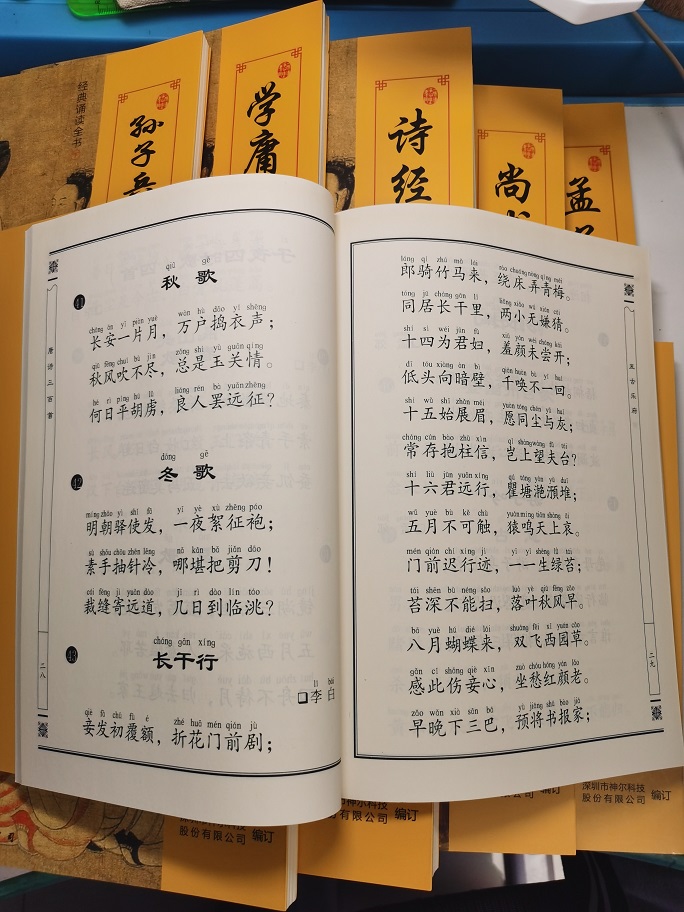 经典诵读全书
孙子兵
学庸
诗经
尚书
孟子
唐诗三百首
qiū gē
秋歌
41
cháng ān yí piàn yuè wàn hù dǎo yī shēng
长安一片月，万户捣衣声；
qiū fēng chuī bú jìn zǒng shì yù guān qíng
秋风吹不尽，总是玉关情。
hé rì píng hú lǔ liáng rén bà yuǎn zhēng
何日平胡虏，良人罢远征？
dōng gē
冬歌
42
míng zhāo yì shǐ fā yí yè xù zhēng páo
明朝驿使发，一夜絮征袍；
sù shǒu chōu zhēn lěng nǎ kān bǎ jiǎn dāo
素手抽针冷，哪堪把剪刀！
cái féng jì yuǎn dào jǐ rì dào lín táo
裁缝寄远道，几日到临洮？
cháng gān xíng
长干行
43
lǐ bái
李白
qiè fà chū fù é zhé huā mén qián jù
妾发初覆额，折花门前剧；
二八
láng qí zhú mǎ lái rào chuáng nòng qīng méi
郎骑竹马来，绕床弄青梅。
tóng jū cháng gān lǐ liǎng xiǎo wú xián cāi
同居长干里，两小无嫌猜。
shí sì wéi jūn fù xiū yán wèi cháng kāi
十四为君妇，羞颜未尝开；
dī tóu xiàng àn bì qiān huàn bù yì huí
低头向暗壁，千唤不一回。
shí wǔ shǐ zhǎn méi yuàn tóng chén yǔ huī
十五始展眉，愿同尘与灰；
cháng cún bào zhù xìn qǐ shàng wàng fū tái
常存抱柱信，岂上望夫台？
shí liù jūn yuǎn xíng qú táng yàn yù duī
十六君远行，瞿塘滟滪堆；
wǔ yuè bù kě chù yuán míng tiān shàng āi
五月不可触，猿鸣天上哀。
mén qián chí xíng jì yī yī shēng lǜ tái
门前迟行迹，一一生绿苔；
tái shēn bù néng sǎo luò yè qiū fēng zǎo
苔深不能扫，落叶秋风早。
bā yuè hú dié lái shuāng fēi xī yuán cǎo
八月蝴蝶来，双飞西园草。
gǎn cǐ shāng qiè xīn zuò chóu hóng yán lǎo
感此伤妾心，坐愁红颜老。
zǎo wǎn xià sān bā yù jiāng shū bào jiā
早晚下三巴，预将书报家；
五古乐府
二九
深圳市神尔科技
股份有限公司 编订
市神尔科技
股份有限公司 编订
深圳市神尔科技
股份有限公司 编订